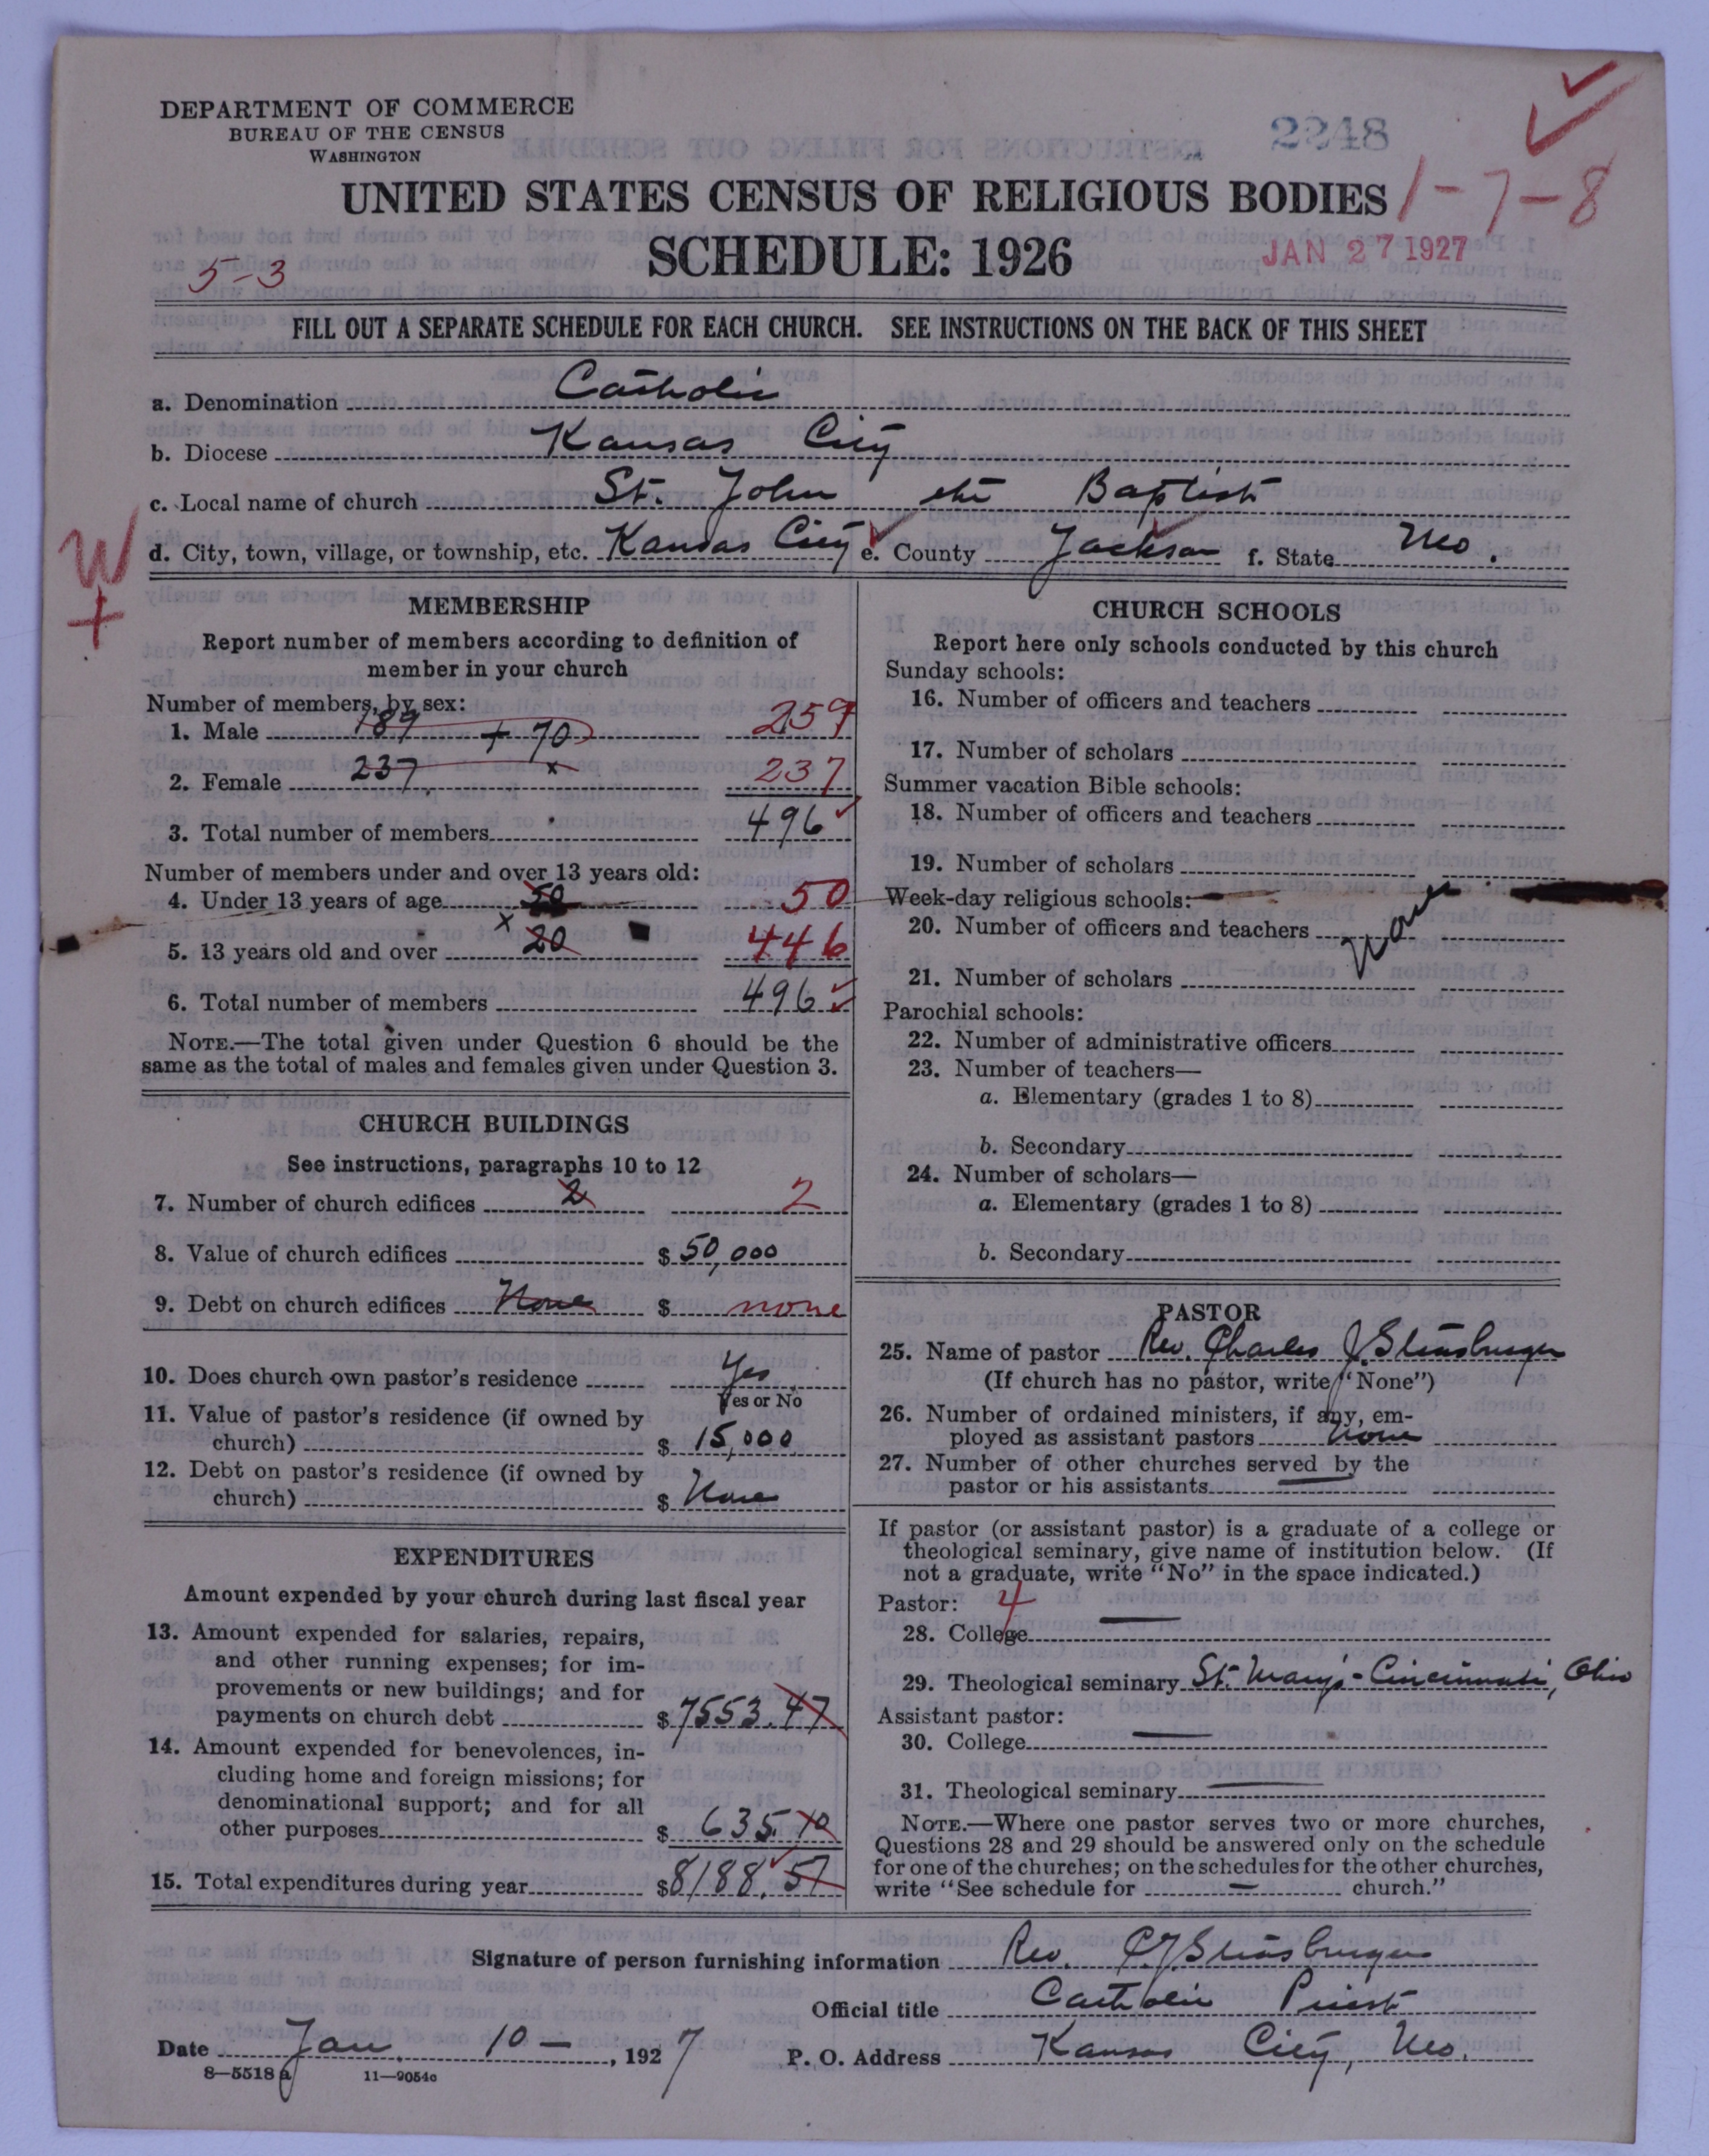 DEPARTMENT OF COMMERCE
BUREAU OF THE CENSUS
WASHINGTON
2248
UNITED STATES CENSUS OF RELIGIOUS BODIES
1-7-8
SCHEDULE: 1926
JAN 27 1927
5-3
FILL OUT A SEPARATE SCHEDULE FOR EACH CHURCH. SEE INSTRUCTIONS ON THE BACK OF THIS SHEET
a. Denomination Catholic
b. Diocese Kansas City
c. Local name of church St. John the Baptist
d. City, town, village, or township, etc. Kansas City e. County Jackson f. State Mo.
W
+
MEMBERSHIP
Report number of members according to definition of
member in your church
Number of members, by sex:
1. Male 189 + 70 259
2. Female 237 x 237
3. Total number of members 496
Number of members under and over 13 years old:
4. Under 13 years of age 50 50
5. 13 years old and over x 20 446
6. Total number of members 496
NOTE.—The total given under Question 6 should be the
same as the total of males and females given under Question 3.
CHURCH BUILDINGS
See instructions, paragraphs 10 to 12
7. Number of church edifices 2 2
8. Value of church edifices $ 50,000
9. Debt on church edifices None $ none
10. Does church own pastor's residence Yes
Yes or No
11. Value of pastor's residence (if owned by
church) $ 15,000
12. Debt on pastor's residence (if owned by
church) $ None
EXPENDITURES
Amount expended by your church during last fiscal year
13. Amount expended for salaries, repairs,
and other running expenses; for im-
provements or new buildings; and for
payments on church debt $ 7553.47
14. Amount expended for benevolences, in-
cluding home and foreign missions; for
denominational support; and for all
other purposes $ 635.10
15. Total expenditures during year $ 8188.57
CHURCH SCHOOLS
Report here only schools conducted by this church
Sunday schools:
16. Number of officers and teachers
17. Number of scholars
Summer vacation Bible schools:
18. Number of officers and teachers
19. Number of scholars
Week-day religious schools:
20. Number of officers and teachers None
21. Number of scholars
Parochial schools:
22. Number of administrative officers
23. Number of teachers—
a. Elementary (grades 1 to 8)
b. Secondary
24. Number of scholars—
a. Elementary (grades 1 to 8)
b. Secondary
PASTOR
25. Name of pastor Rev. Charles J. Strasburger
(If church has no pastor, write "None")
26. Number of ordained ministers, if any, em-
ployed as assistant pastors None
27. Number of other churches served by the
pastor or his assistants —
If pastor (or assistant pastor) is a graduate of a college or
theological seminary, give name of institution below. (If
not a graduate, write "No" in the space indicated.)
Pastor: 4
28. College —
29. Theological seminary St. Mary's - Cincinnati, Ohio
Assistant pastor:
30. College —
31. Theological seminary —
NOTE.—Where one pastor serves two or more churches,
Questions 28 and 29 should be answered only on the schedule
for one of the churches; on the schedules for the other churches,
write "See schedule for — church."
Signature of person furnishing information Rev. C J Strasburger
Official title Catholic Priest
Date Jan. 10 —, 1927
P. O. Address Kansas City, Mo.
8—5518 a 11—9054c